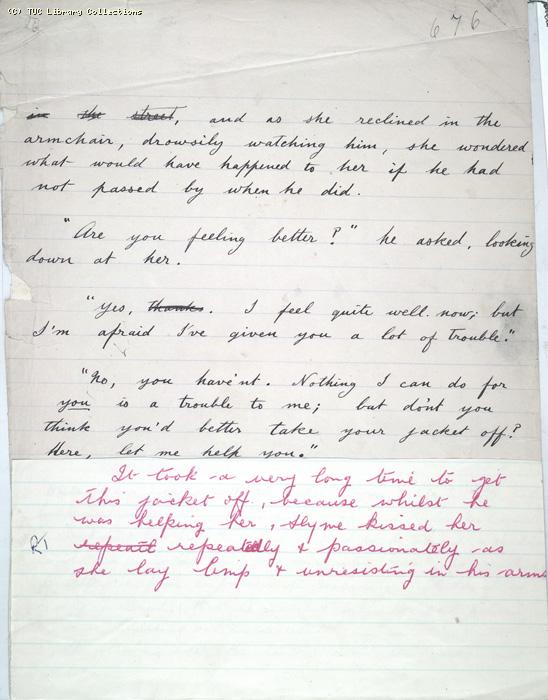 (C) TUC Library Collections
676
in the street, and as she reclined in the
armchair, drowsily watching him, she wondered
what would have happened to her if he had
not passed by when he did.
"Are you feeling better?" he asked, looking
down at her.
"Yes, thanks. I feel quite well now; but
I'm afraid I've given you a lot of trouble."
"No, you have'nt. Nothing I can do for
you is a trouble to me; but do'nt you
think you'd better take your jacket off?
Here, let me help you."
It took a very long time to get
this jacket off, because whilst he
was helping her, Slyme kissed her
repeatedly & passionately as
she lay limp & unresisting in his arms